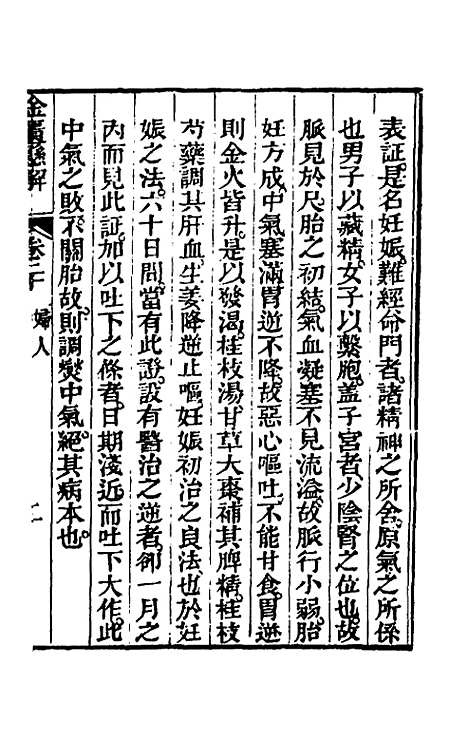 表証是名妊娠難經命門者諸精神之所舍原氣之所係
也男子以藏精女子以繫胞蓋子宮者少陰腎之位也故
脈見於尺胎之初結氣血凝塞不見流溢故脈行小弱胎
妊方成中氣塞滿胃逆不降故惡心嘔吐不能甘食胃逆
則金火皆升是以發渴桂枝湯甘草大棗補其脾精桂枝
芍藥調其肝血生姜降逆止嘔妊娠初治之良法也於妊
娠之法六十日間當有此證設有醫治之逆者卻一月之
內而見此証加以吐下之條者日期淺近而吐下大作此
中氣之敗不關胎故則調燮中氣絕其病本也
金匱懸解 卷二十 婦人 二